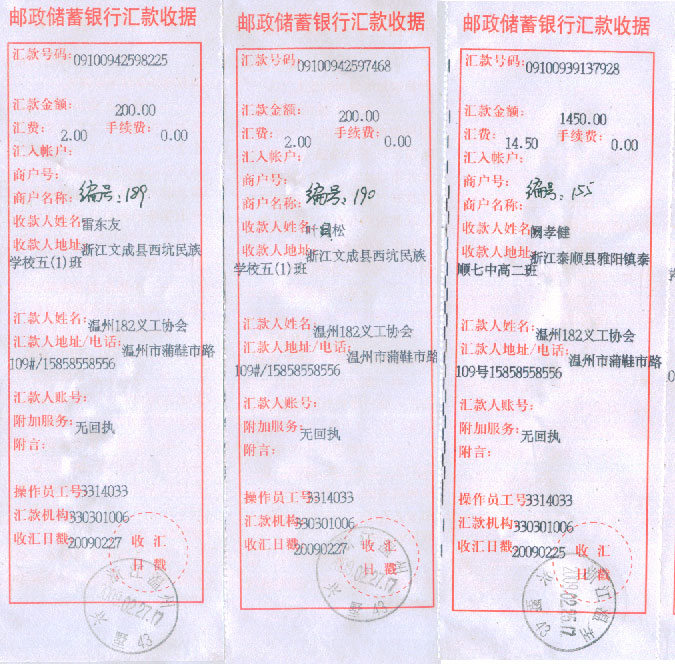 邮政储蓄银行汇款收据
汇款号码:09100942598225
汇款金额: 200.00
汇费: 2.00 手续费: 0.00
汇入帐户:
商户号:
商户名称: 编号:189
收款人姓名雷东友
收款人地址浙江文成县西坑民族
学校五(1)班
汇款人姓名:温州182义工协会
汇款人地址/电话:温州市蒲鞋市路
109#/15858558556
汇款人账号:
附加服务:无回执
附言:
操作员工号3314033
汇款机构330301006
收汇日戳20090227
收汇
日戳
浙江温州
2009.02.27.17
水墅43
邮政储蓄银行汇款收据
汇款号码09100942597468
汇款金额: 200.00
汇费: 2.00 手续费: 0.00
汇入帐户:
商户号:
商户名称: 编号:190
收款人姓名叶 松
收款人地址浙江文成县西坑民族
学校五(1)班
汇款人姓名:温州182义工协会
汇款人地址/电话:温州市蒲鞋市路
109#/15858558556
汇款人账号:
附加服务:无回执
附言:
操作员工号3314033
汇款机构330301006
收汇日戳20090227
收汇
日戳
02.27.17
43
邮政储蓄银行汇款收据
汇款号码:09100939137928
汇款金额: 1450.00
汇费: 14.50 手续费: 0.00
汇入帐户:
商户号:
商户名称: 编号:155
收款人姓名阙孝健
收款人地址浙江泰顺县雅阳镇泰
顺七中高二班
汇款人姓名:温州182义工协会
汇款人地址/电话:温州市蒲鞋市路
109号15858558556
汇款人账号:
附加服务:无回执
附言:
操作员工号3314033
汇款机构330301006
收汇日戳20090225
收汇
日戳
浙江温州
2009.02.25.17
43